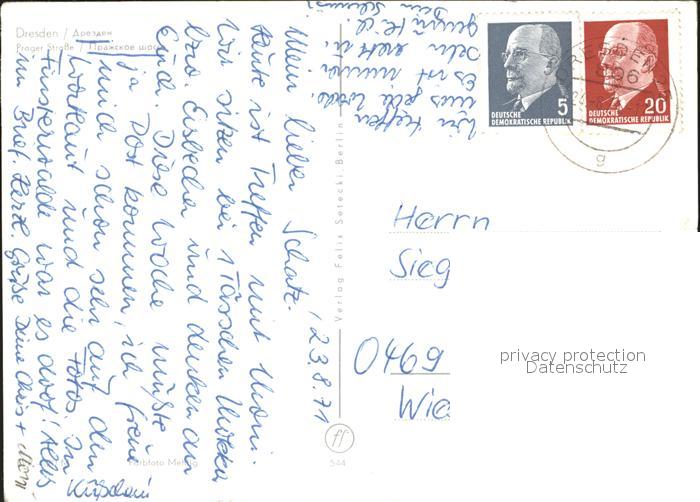 Dresden / Дрезден
Prager Straße / Пражское шоссе
Mein lieber Schatz! 23.8.71
Heute ist Treffen mit Moni.
Wir sitzen bei 1 Tässchen Mokka
bzw. Eisbecher und denken an
Euch. Diese Woche müßte
ja Post kommen, ich freue
mich schon sehr auf den
Wortlaut und die Fotos. In
Finsterwalde war es doof! Alles
im Brief. Herzl. Grüße Deine
Wir treffen
uns jede Woche.
Es ist immer
sehr nett u.
DEUTSCHE
DEMOKRATISCHE REPUBLIK
5
DEUTSCHE
DEMOKRATISCHE REPUBLIK
20
g
Herrn
Sieg
0469
Wie
privacy protection
Datenschutz
Verlag Felix Setecki, Berlin
ff
544
Farbfoto